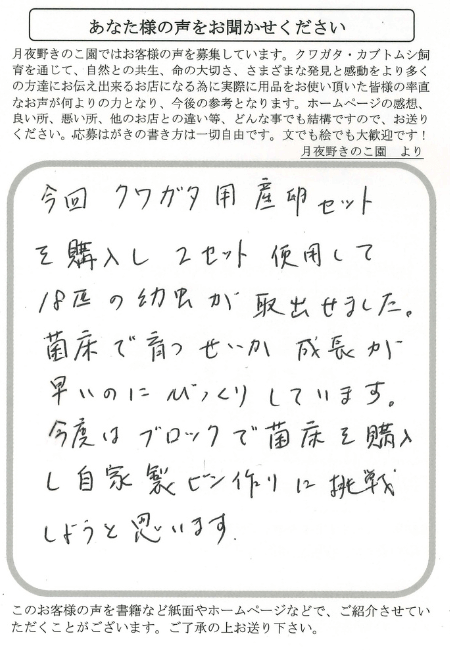 あなた様の声をお聞かせください
月夜野きのこ園ではお客様の声を募集しています。クワガタ・カブトムシ飼
育を通じて、自然との共生、命の大切さ、さまざまな発見と感動をより多く
の方達にお伝え出来るお店になる為に実際に用品をお使い頂いた皆様の率直
なお声が何よりの力となり、今後の参考となります。ホームページの感想、
良い所、悪い所、他のお店との違い等、どんな事でも結構ですので、お送り
ください。応募はがきの書き方は一切自由です。文でも絵でも大歓迎です！
月夜野きのこ園　より
今回 クワガタ用 産卵セット
を購入し 2セット 使用して
18匹の幼虫が 取出せました。
菌床で育つせいか 成長が
早いのにびっくりしています。
今度はブロックで菌床を購入
し自家製ビン作りに挑戦
しようと思います.
このお客様の声を書籍など紙面やホームページなどで、ご紹介させてい
ただくことがございます。ご了承の上お送り下さい。